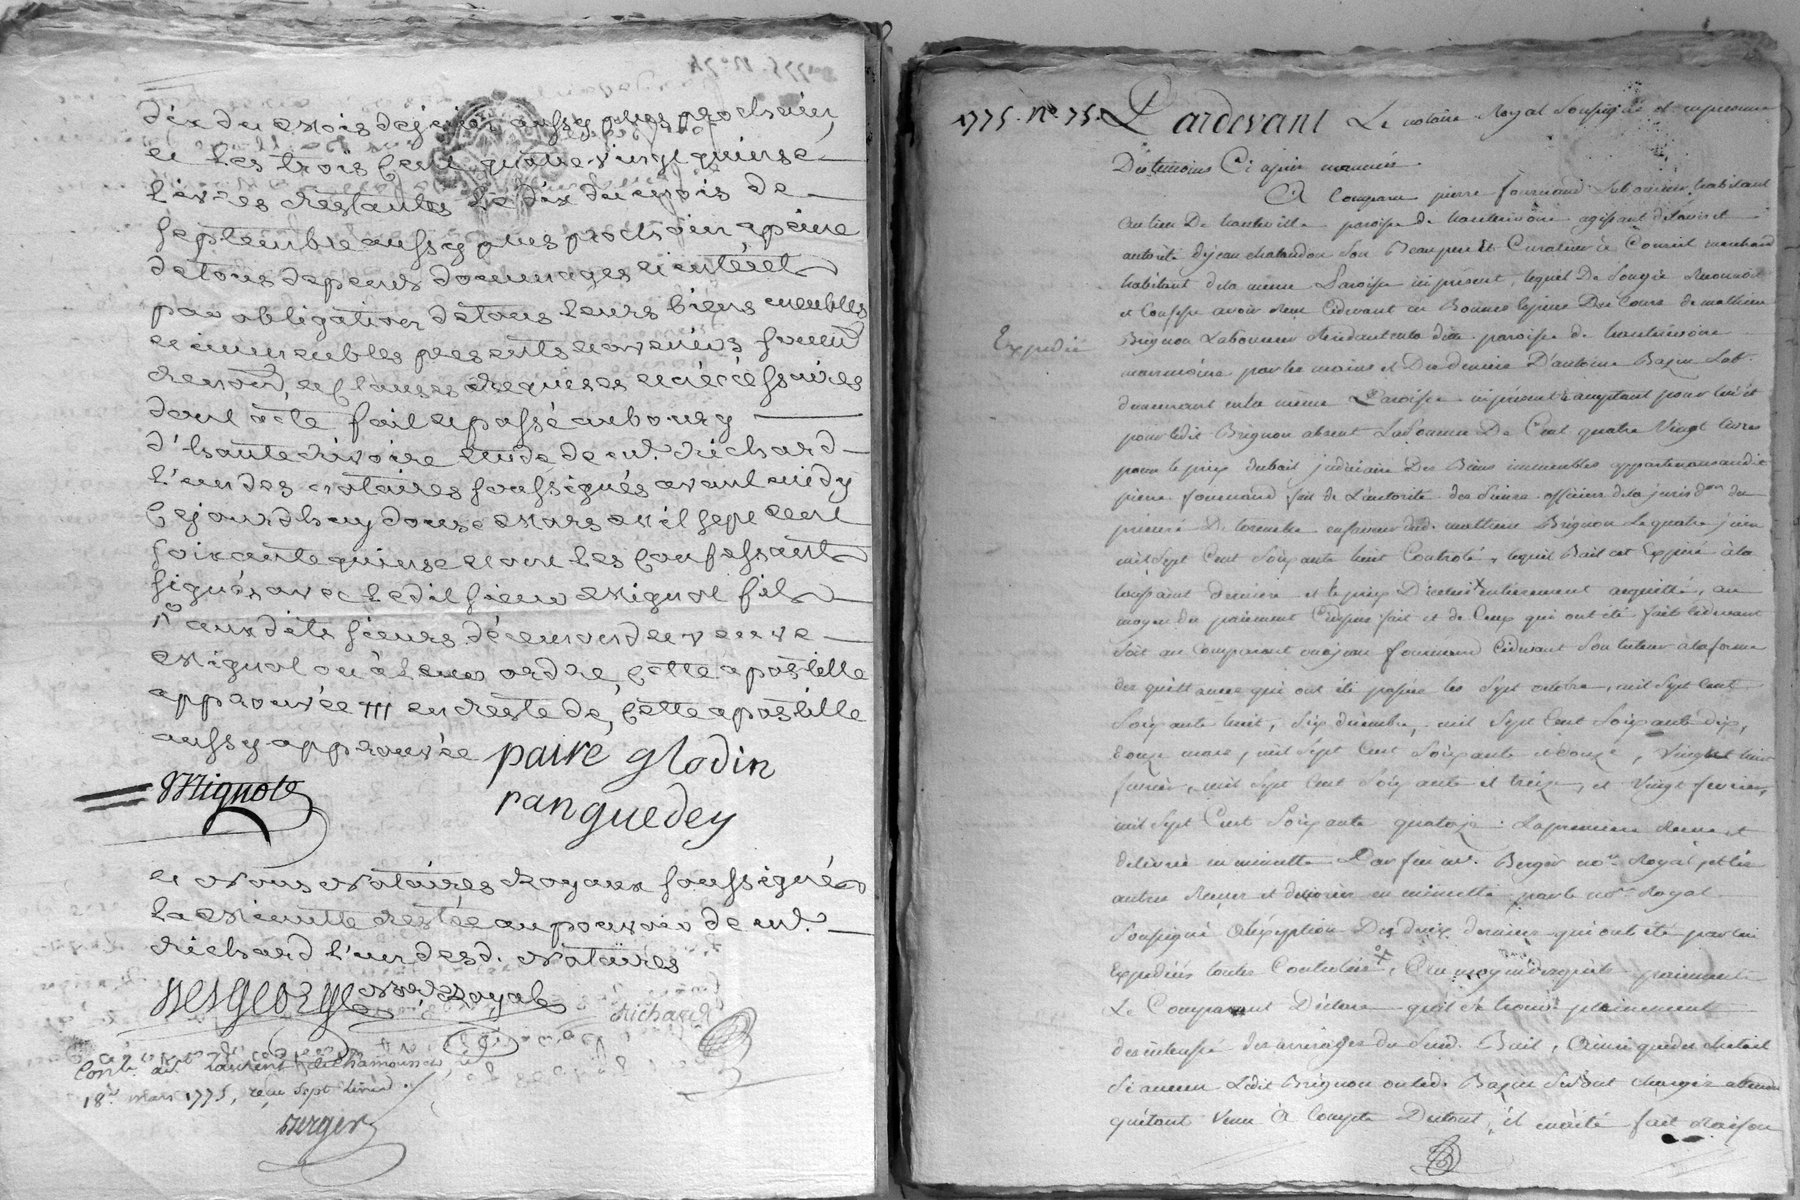 dix du mois de juin aussy plus prochain,
et les trois cent quatre vingt quinze
livres restantes le dix du mois de
septembre aussy plus prochain a peine
de tous depens dommages et intérêt
par obligation de tous leurs biens meubles
et immeubles presents et avenirs, soum
renon, et clauses requises et nécéssaires
dont acte fait et passé au bourg
d'hauterivoire etude de me. Richard
l'un des notaires soussignés avant midy
cejourdhuy douse mars mil sept cent
soixante quinse et ont les confessant
signés avec ledit sieur Mignot fils
aux dits sieurs demeurder veuve
Mignot ou à leur ordre, cette apostille
approuvée /// en reste de, cette apostille
aussy approuvée paire glodin
Mignote ranguedey
et nous notaires Royaux soussignés
la Minutte restée au pouvoir de me.
Richard l'un desd. notaires
Desgeorge nore Royal Richard
Contlé. à St Laurent de Chamousset
18e. Mars 1775, reçu sept livres
Berger
1775. No. 75. Pardevant Le notaire Royal soussigné et en presence
Des temoins Ci après nommés
A Comparu pierre fournand Laboureur habitant
au lieu De hauteville paroisse de hauterivoire agissant de l'avis et
autorité de jean chatandon son Beaupere et Curateur Conseil marchand
habitant de la meme Paroisse ici présent, lequel De son gré Reconnoit
et Confesse avoir Reçu Cidevant en Bonnes Espèces Du Cours de mathieu
Expédié
Brignon Laboureur Résidant en la dite paroisse de hauterivoire
par les mains et Des deniers D'antoine Bazin Lab.
demeurant en la même Paroisse ici présent & acceptant pour lui et
pour ledit Brignon absent La Somme De Cent quatre Vingt livres
pour le prix du bail judiciaire Des Biens immeubles appartenans audit
pierre fournand fait de L'autorité des Sieurs officiers de la jurisdon du
prieuré De en faveur dud. mathieu Brignon Le quatre juin
mil Sept Cent Soixante huit Controlé, lequel Bail est Expiré à la
toussaint derniere et le prix D'icelui entierement acquitté, au
moyen du paiement Ci fait et de Ceux qui ont été faits Cidevant
Soit au Comparant ou à jean fournand Cidevant Son tuteur à la forme
des quittances qui ont été passées les Sept octobre, mil Sept Cent
Soixante huit, Six décembre, mil Sept Cent Soixante dix,
Douze mars, mil Sept Cent Soixante et douze, Vingt huit
fevrier, mil Sept Cent Soixante et treize, et Vingt fevrier,
mil Sept Cent Soixante quatorze: La premiere Recue et
délivrée en minutte Par feu me. Berger nore Royal et les
autres Recues et en minutte par le nore Royal
Soussigné à l'exception Des deux dernieres qui ont été par lui
Expediées toutes Controlées, Au moyen paiement
Le Comparant Déclare qu'il Se trouve pleinement
des interessé des arrérages du Susd. Bail, Ainsi que du chetail
Si aucun Ledit Brignon ou led. Bazin Se sont chargés attendu
qu'étant Venu à Compte Du tout, il m'a été fait Raison